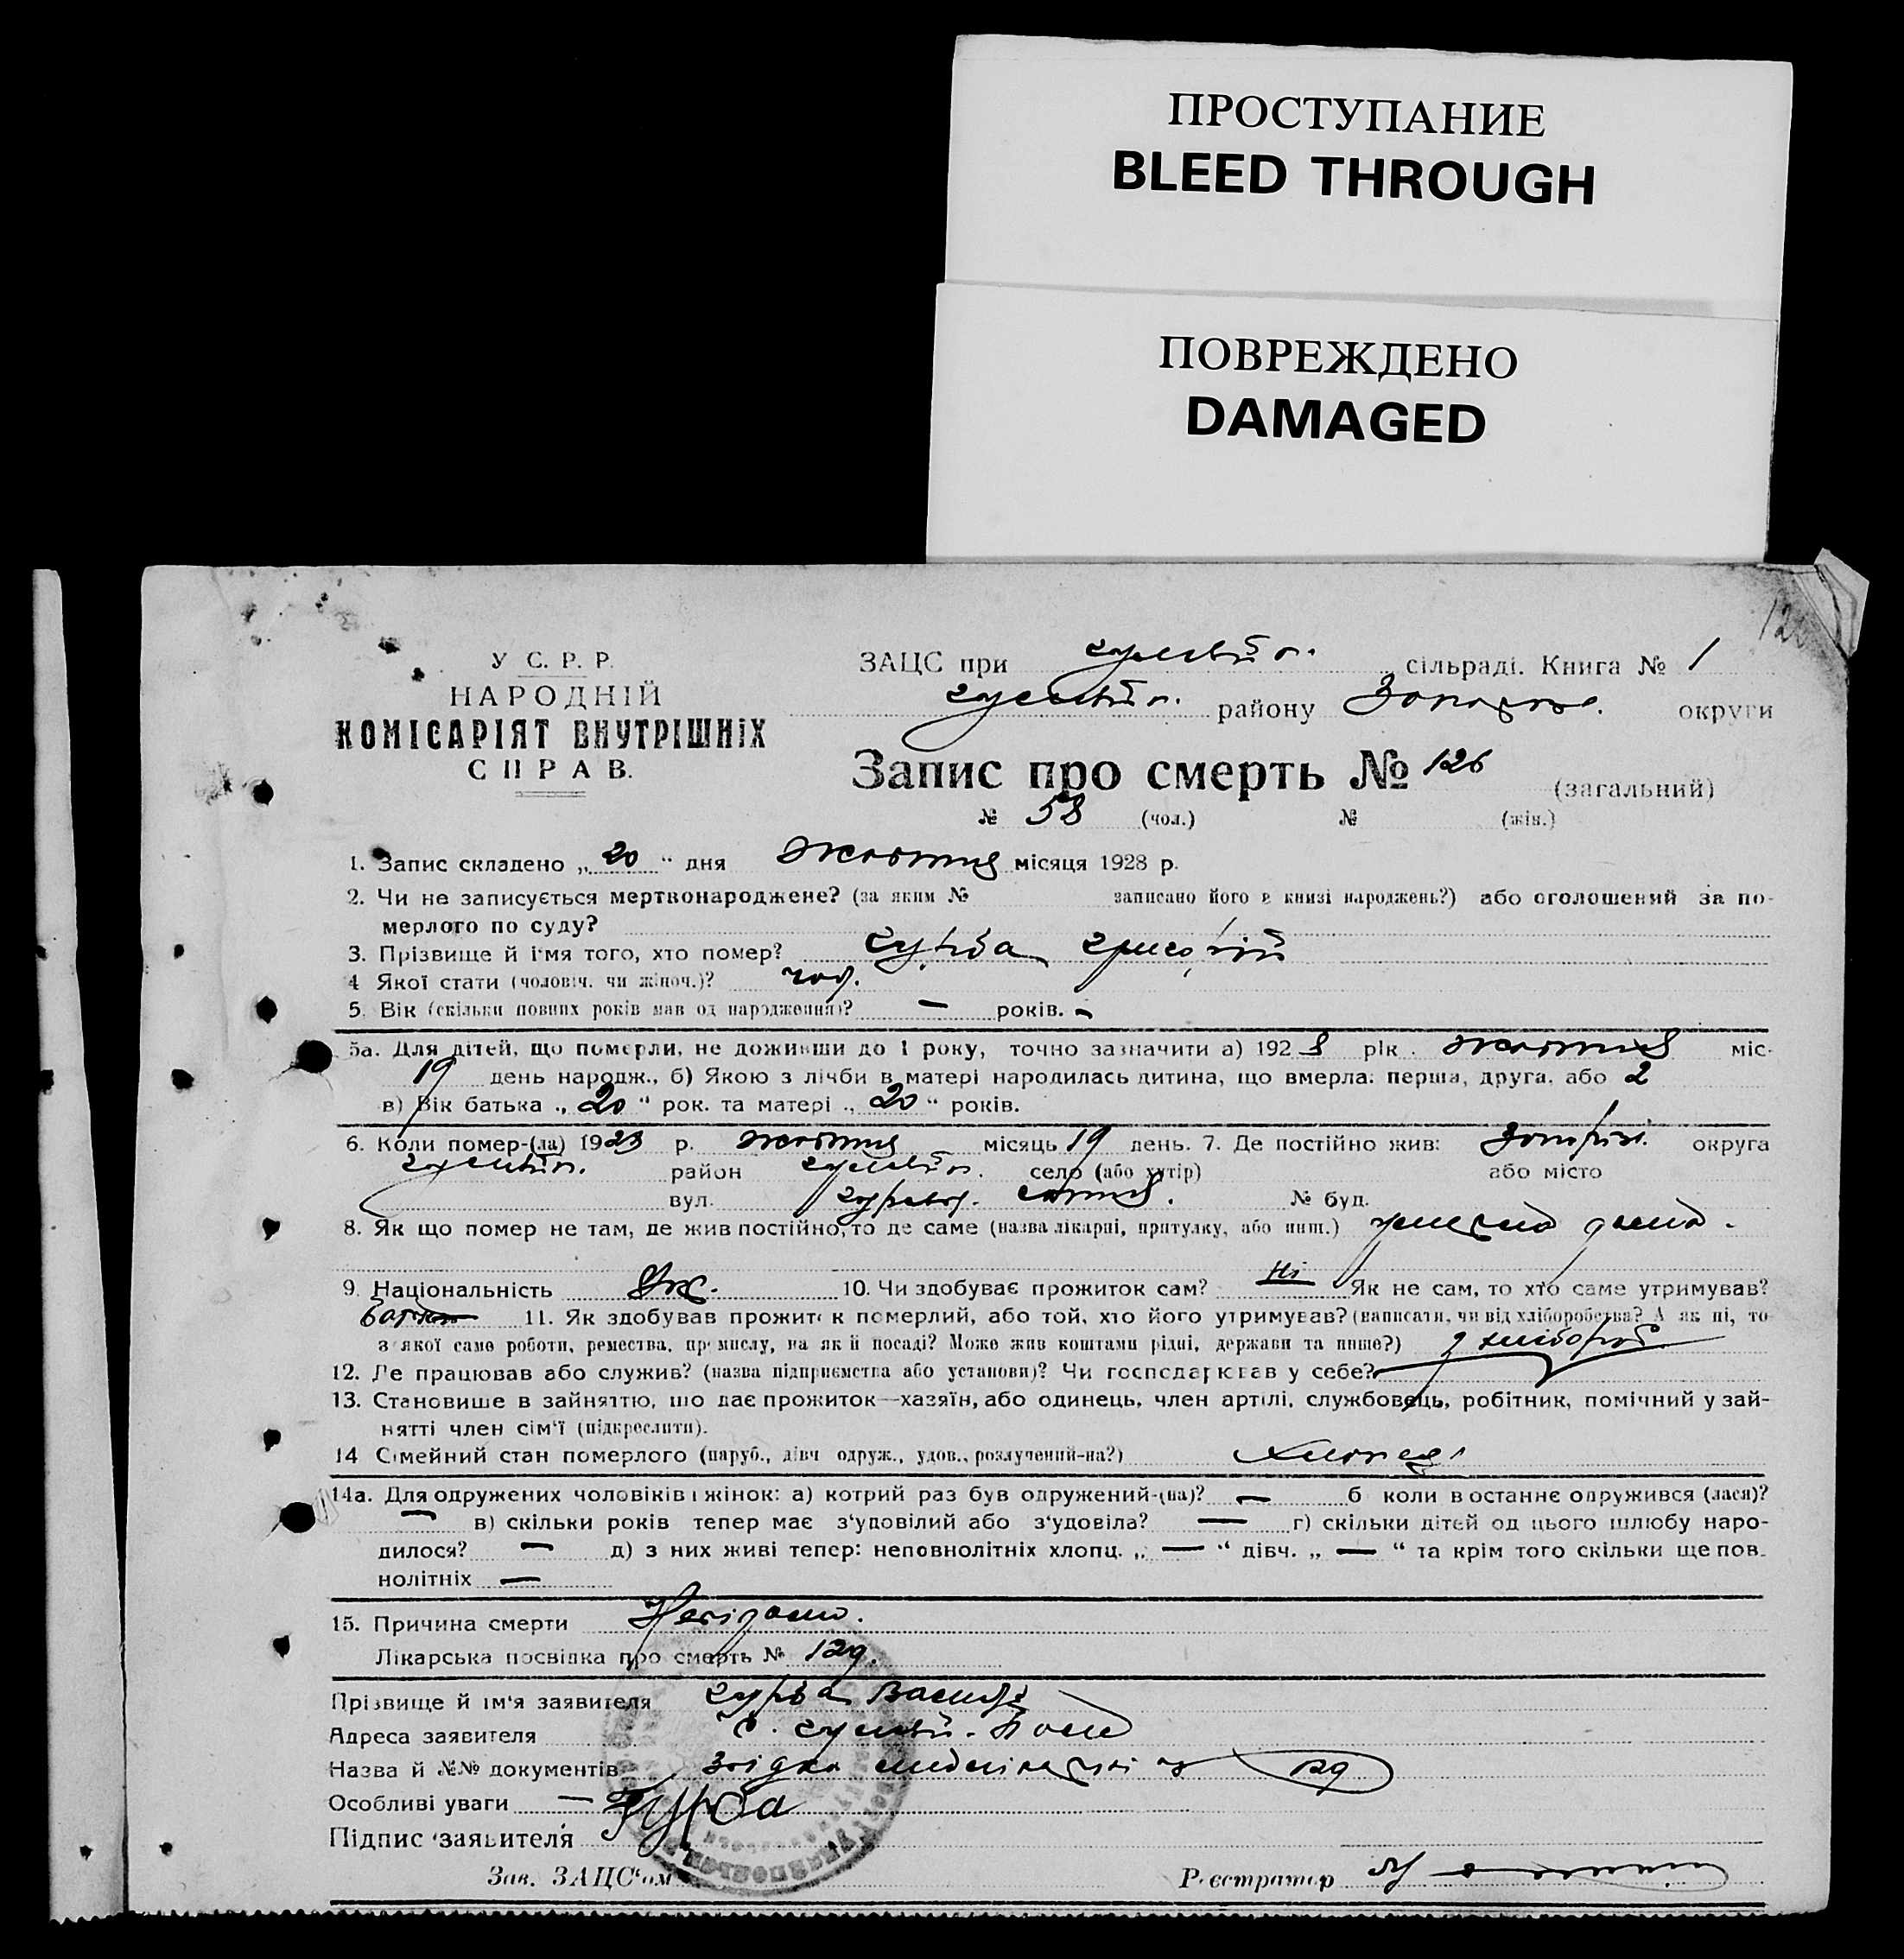 ПРОСТУПАНИЕ
BLEED THROUGH
ПОВРЕЖДЕНО
DAMAGED
У С. Р. Р.
НАРОДНІЙ
КОМІСАРІЯТ ВНУТРІШНІХ
СПРАВ.
ЗАЦС при сільраді. Книга № 1
району округи
Запис про смерть № 126 (загальний)
№ 58 (чол.) № (жін.)
1. Запис складено „ 20 “ дня жовтня місяця 1928 р.
2. Чи не записується мертвонароджене? (за яким № записано його в книзі народжень?) або оголошений за по-
мерлого по суду?
3. Прізвище й ім'я того, хто помер? Гурба Григорій
4 Якої стати (чоловіч. чи жіноч.)? чол.
5. Вік (скільки повних років мав од народження)? — років. —
5а. Для дітей, що померли, не доживши до 1 року, точно зазначити а) 1928 рік . жовтня міс.
19 день народж., б) Якою з лічби в матері народилась дитина, що вмерла: перша, друга, або 2
в) Вік батька „ 20 “ рок. та матері „ 20 “ років.
6. Коли помер-(ла) 1928 р. жовтня місяць 19 день. 7. Де постійно жив: округа
район село (або хутір) або місто
вул. № буд.
8. Як що помер не там, де жив постійно, то де саме (назва лікарні, притулку, або инш.)
9. Національність Укр. 10. Чи здобуває прожиток сам? Ні Як не сам, то хто саме утримував?
батько 11. Як здобував прожиток померлий, або той, хто його утримував? (написати, чи від хліборобства? А як ні, то
з якої саме роботи, ремества, промислу, на якій посаді? Може жив коштами рідні, держави та инше?) з хлібороб.
12. Де працював або служив? (назва підприємства або установи)? Чи господарював у себе?
13. Становище в зайняттю, що дає прожиток—хазяїн, або одинець, член артілі, службовець, робітник, помічний у зай-
нятті член сім'ї (підкреслити).
14 Сімейний стан померлого (паруб., дівч одруж., удов., розлучений-на?) хлопець
14а. Для одружених чоловіків і жінок: а) котрий раз був одружений-(на)? — б коли в останнє одружився (лася)?
— в) скільки років тепер має з'удовілий або з'удовіла? — г) скільки дітей од цього шлюбу наро-
дилося? — д) з них живі тепер: неповнолітніх хлопц. „ — “ дівч. „ — “ та крім того скільки ще пов-
нолітніх —
15. Причина смерти Невідомо.
Лікарська посвідка про смерть № 129.
Прізвище й ім'я заявителя Гурба Василь
Адреса заявителя
Назва й №№ документів 129
Особливі уваги —
Підпис заявителя Гурба
Зав. ЗАЦС'ом Реєстратор